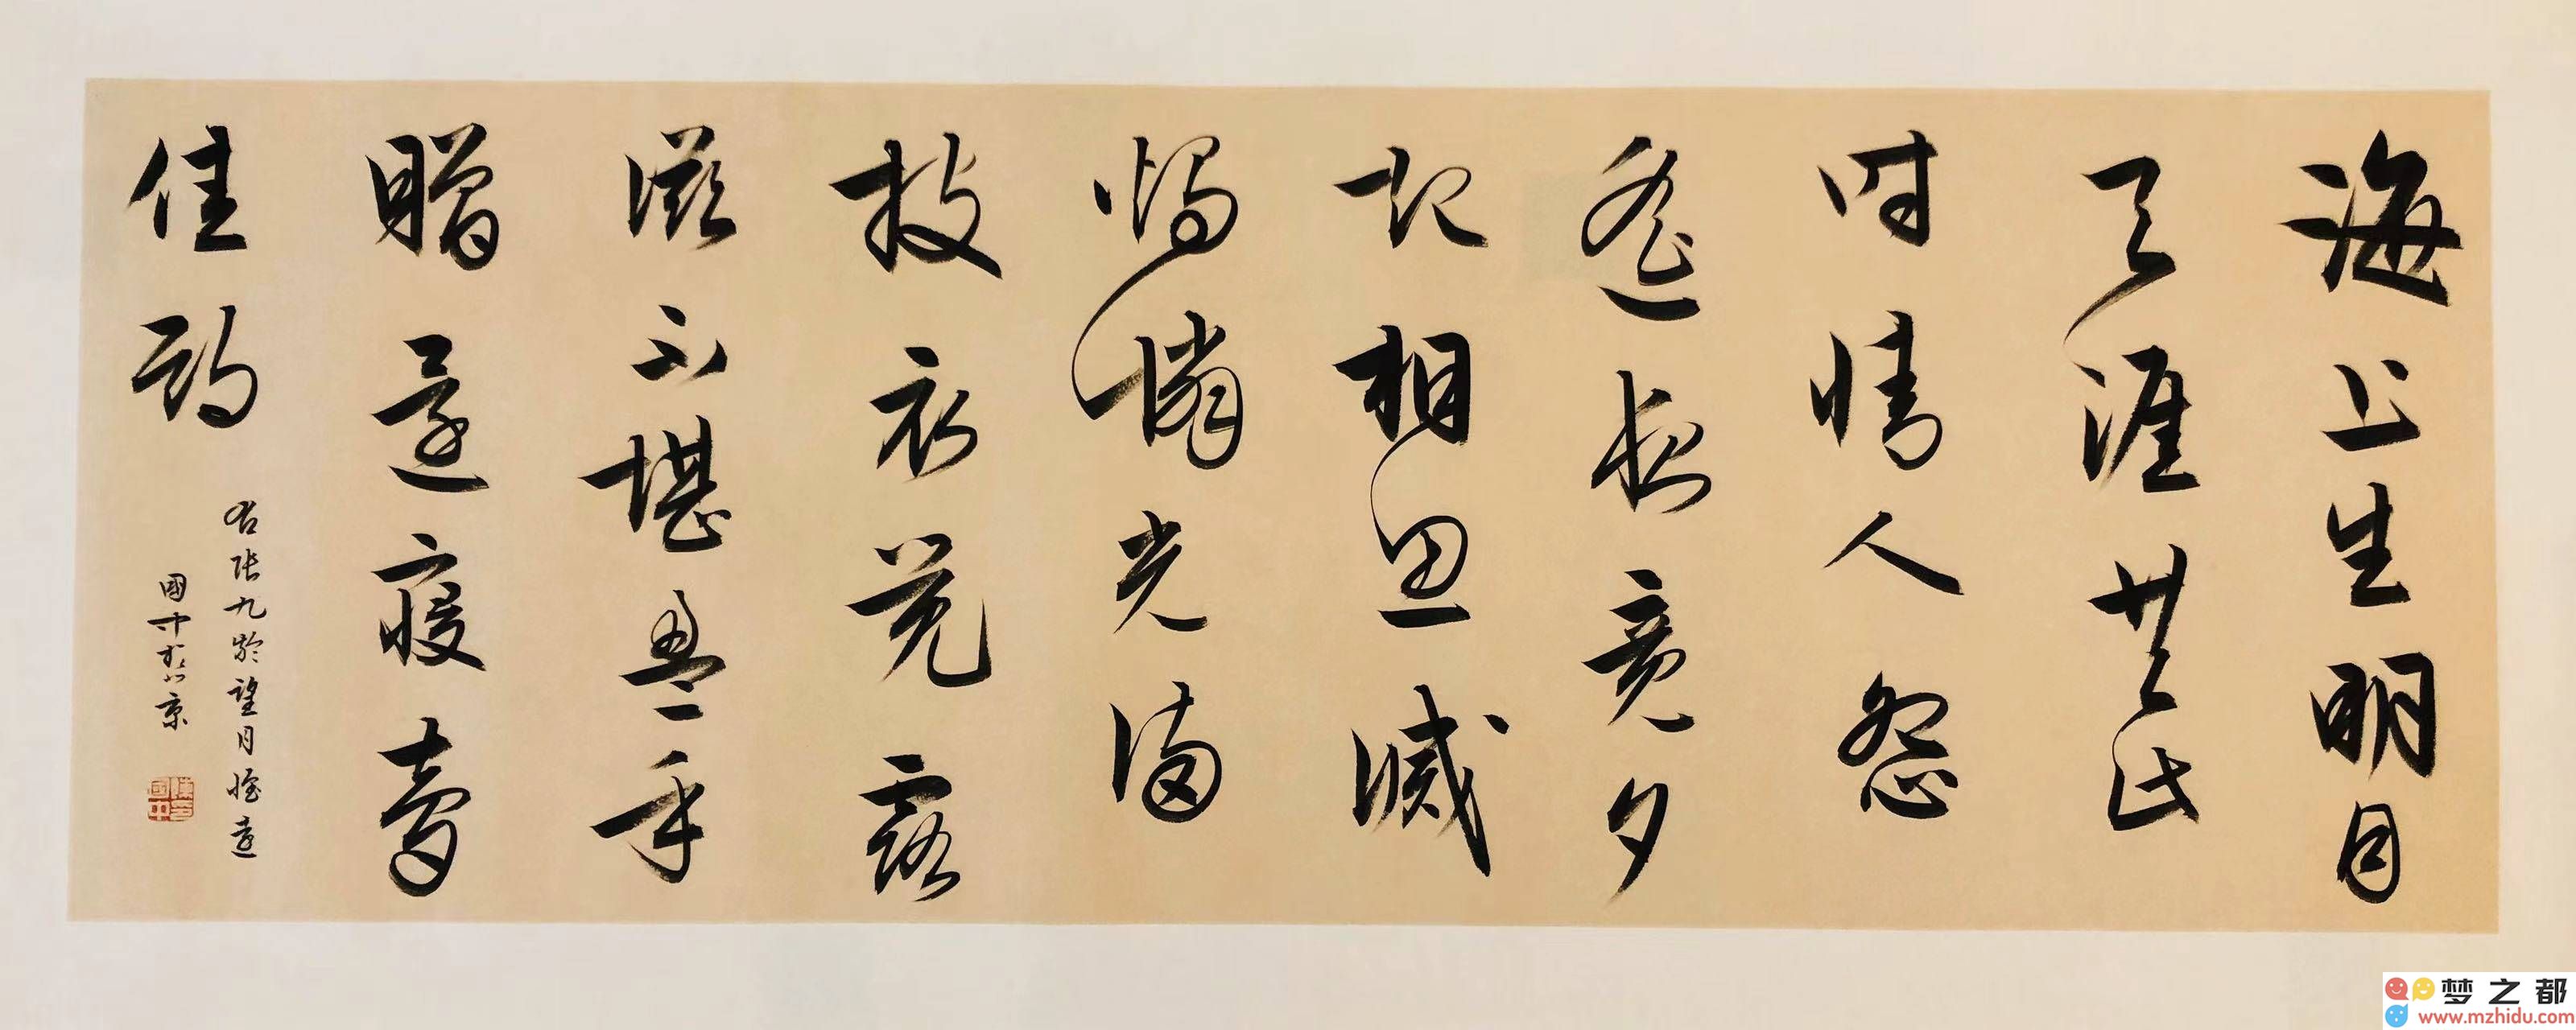 海上生明月
天涯共此
时情人怨
遥夜竟夕
起相思灭
烛怜光满
披衣觉露
滋不堪盈手
赠还寝梦
佳期
右张九龄望月怀远
國中于北京
梦之都
www.mzhidu.com